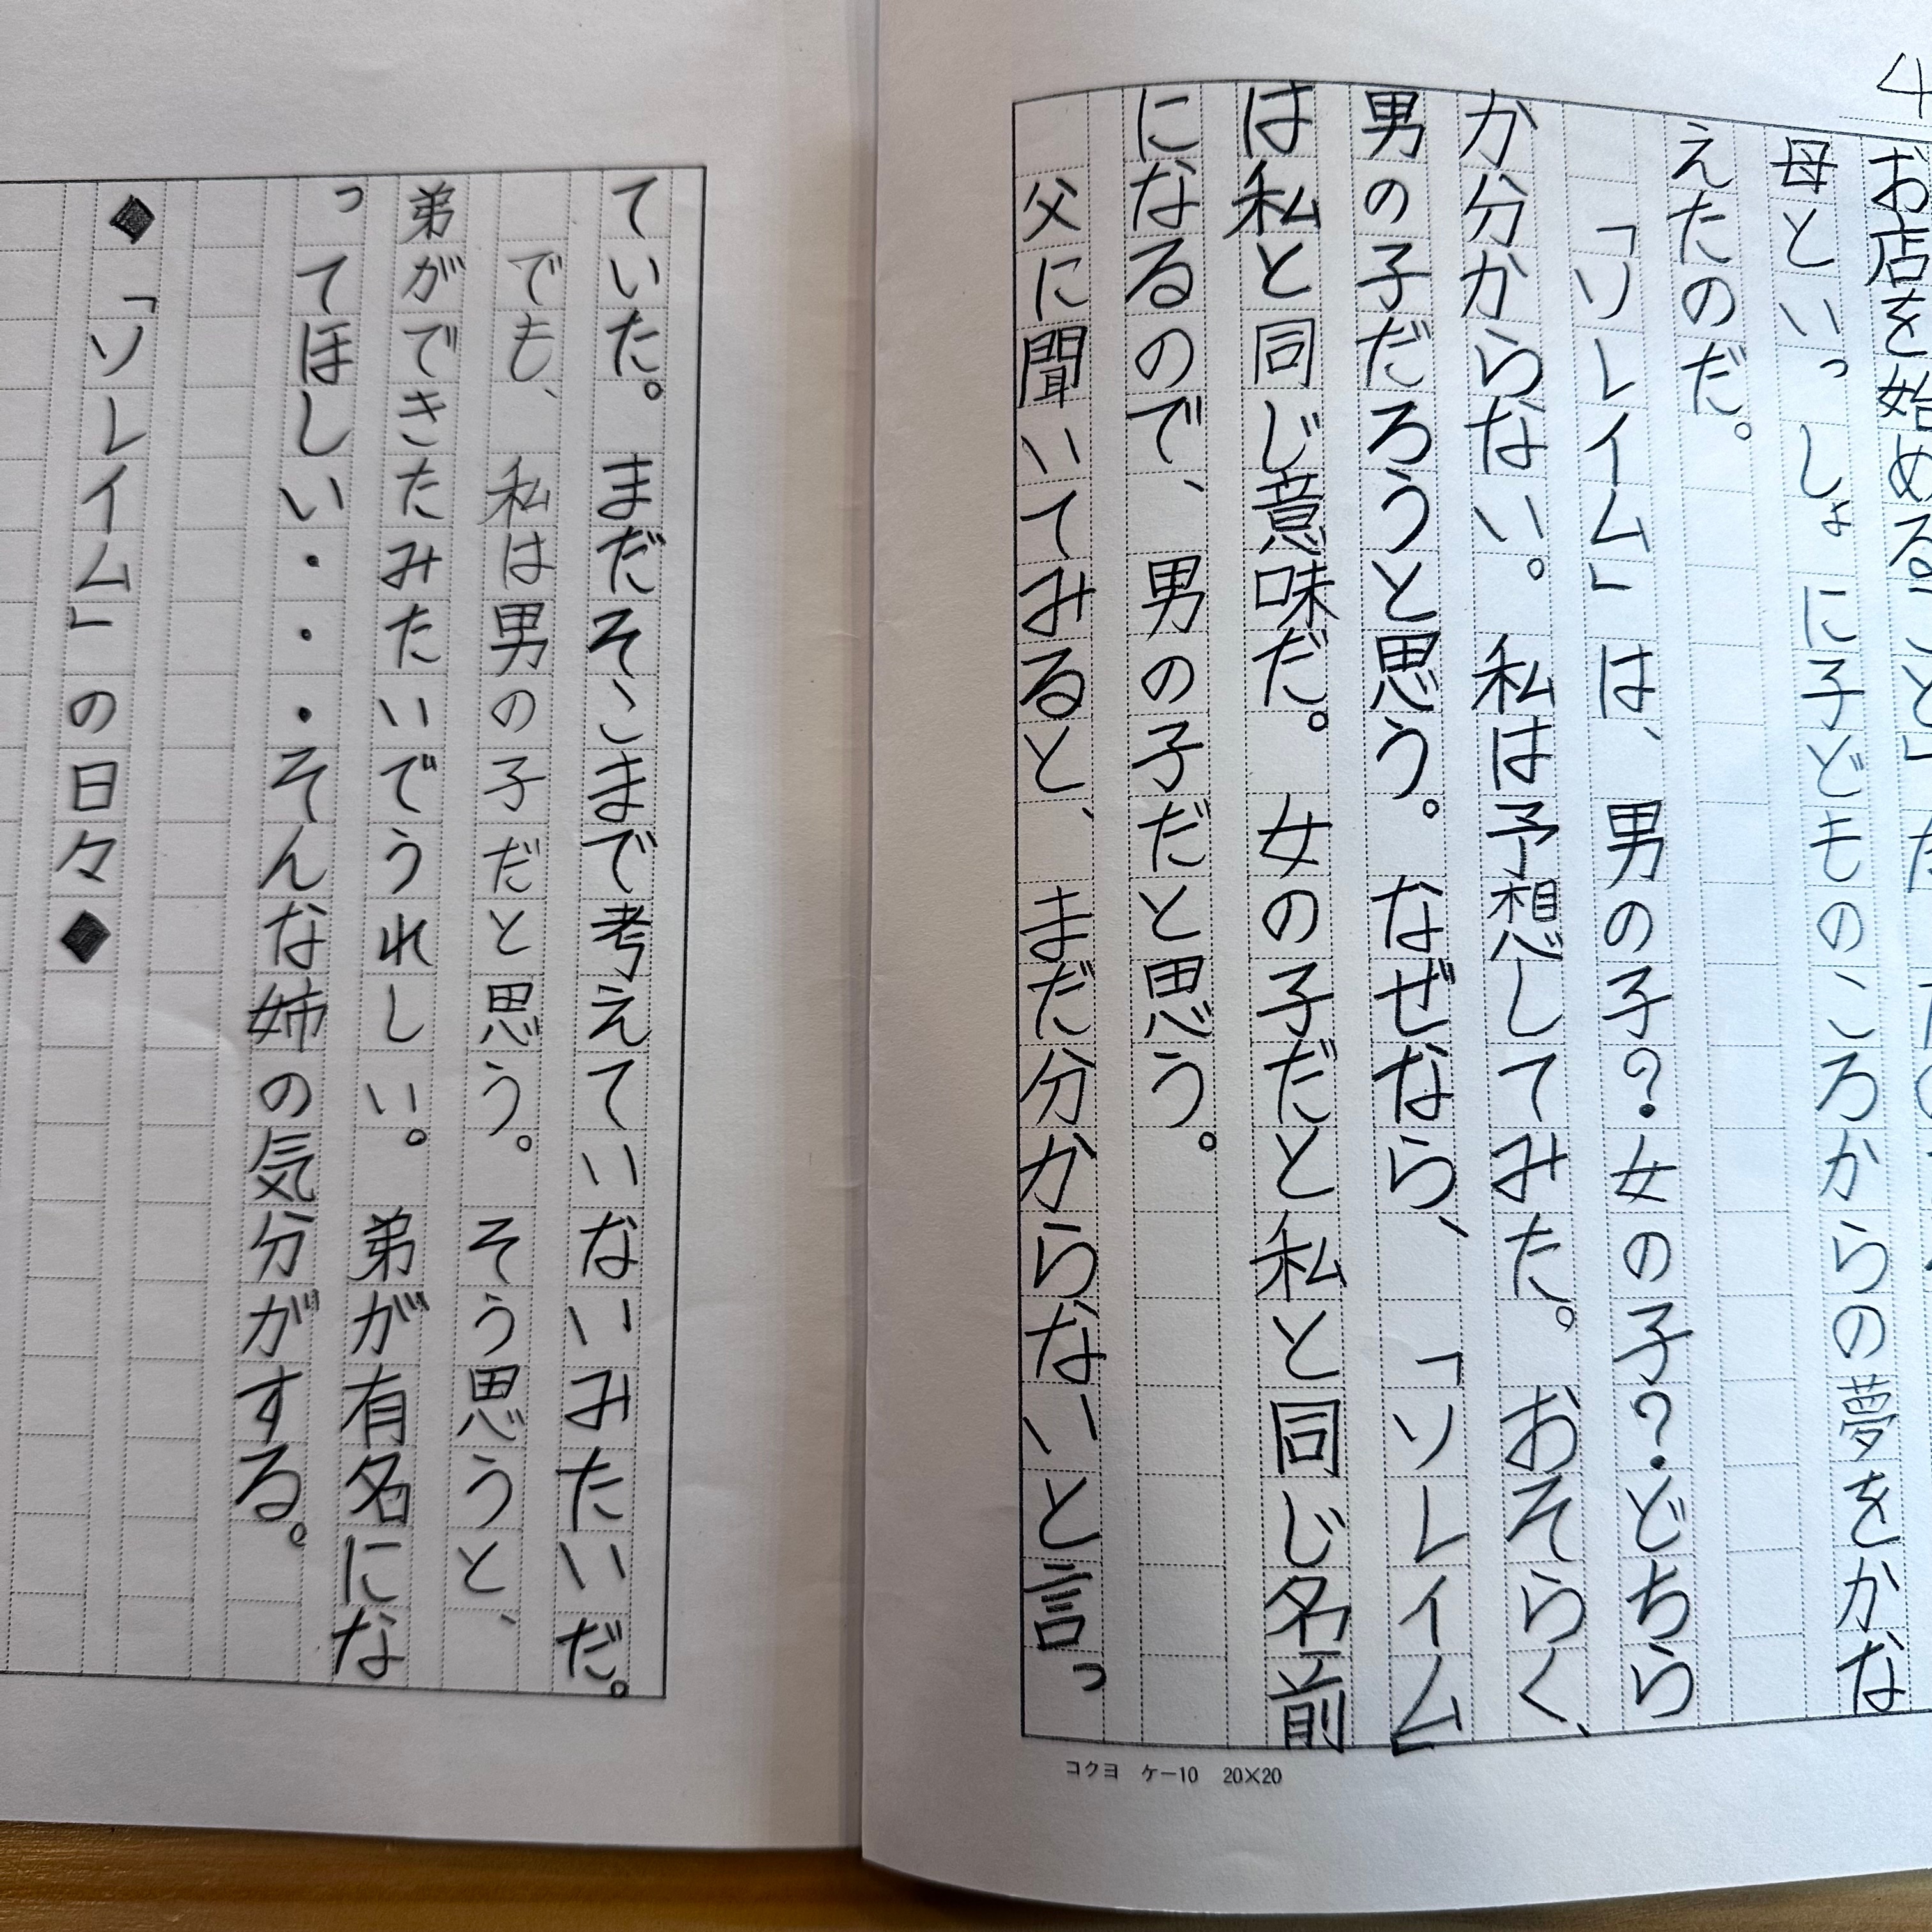 4
お店を始めること」だ
母といっしょに子どものころからの夢をかな
えたのだ。
「ソレイム」は、男の子?女の子?どちら
か分からない。私は予想してみた。おそらく、
男の子だろうと思う。なぜなら、「ソレイム」
は私と同じ意味だ。女の子だと私と同じ名前
になるので、男の子だと思う。
父に聞いてみると、まだ分からないと言っ
コクヨ ケー10 20×20
ていた。まだそこまで考えていないみたいだ。
でも、私は男の子だと思う。そう思うと、
弟ができたみたいでうれしい。弟が有名にな
ってほしい・・・そんな姉の気分がする。
◆「ソレイム」の日々◆